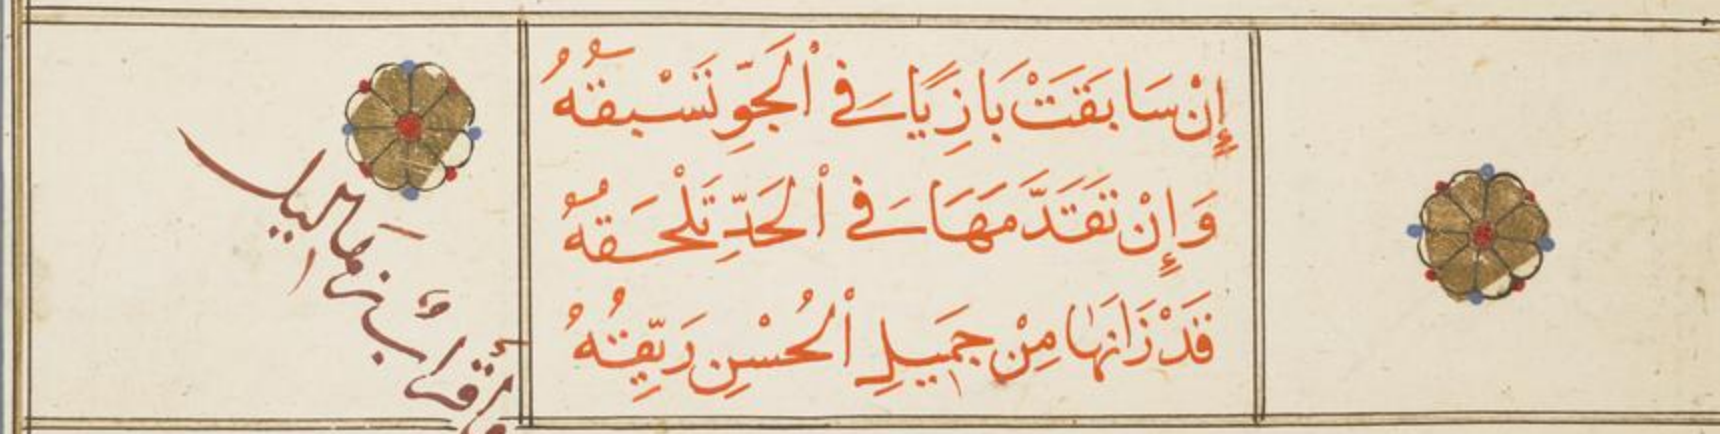 إِنْ سَابَقَتْ بَازِيًا فِي الْجَوِّ تَسْبِقُهُ
وَإِنْ تَقَدَّمَهَا فِي الْحَدِّ تَلْحَقُهُ
قَدْ زَانَهَا مِنْ جَمِيلِ الْحُسْنِ رَيِّقُهُ